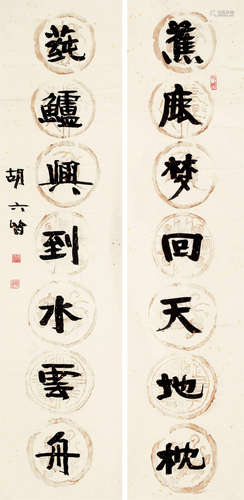 蕉鹿梦回天地枕
蒓鱸興到水雲舟
胡六皆